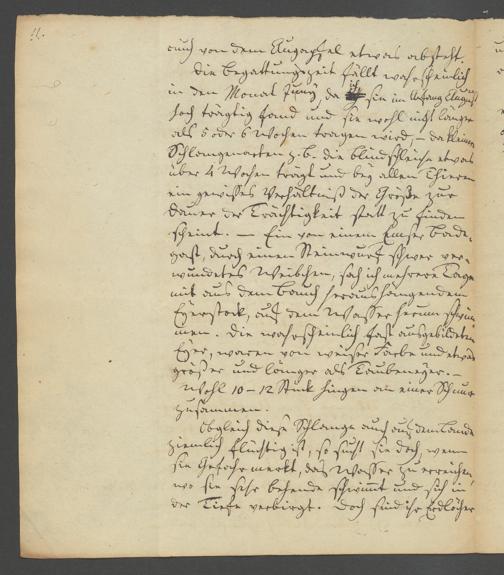 11.
auch von dem Augapfel etwas absteht.
Die Begattungszeit fällt wahrscheinlich
in den Monat Juny, da ich sie im Anfang August
hoch trächtig fand und sie wohl nicht länger
als 5 oder 6 Wochen tragen wird, – da kleinere
Schlangenarten z. b. die blindschleiche etwas
über 4 Wochen trägt und bey allen Thieren
ein gewisses Verhältniß der Größe zur
Dauer der Trächtigkeit statt zu finden
scheint. – Ein von einem Emser Bade-
gast, durch einen Steinwurf schwer ver-
wundetes Weibchen, sah ich mehrere Tage
mit aus dem Bauch heraushängendem
Eyerstock, auf dem Wasser herum schwim-
men. Die wahrscheinlich fast ausgebildeten
Eyer, waren von weißer Farbe und etwas
größer und länger als Taubeneyer. –
Wohl 10 – 12 Stück hingen an einer Schnur
zusammen.
Obgleich diese Schlange auch auf dem Lande
ziemlich flüchtig ist, so sucht sie doch, wenn
sie Gefahr merkt, das Wasser zu erreichen,
wo sie sehr behende schwimmt und sich in
der Tiefe verbirgt. Doch sind ihr Erdlöcher